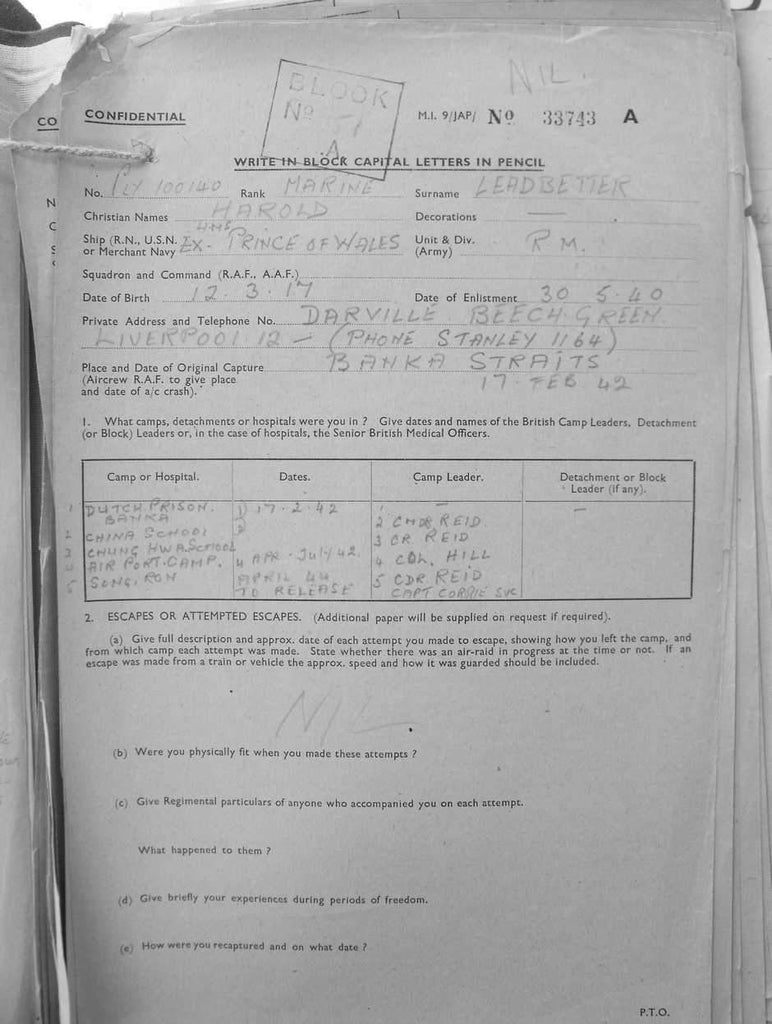 NIL.
BLOCK
No 7
A
CO
CONFIDENTIAL
M.I. 9/JAP/ No 33743 A
WRITE IN BLOCK CAPITAL LETTERS IN PENCIL
No. PLY 100140 Rank MARINE Surname LEADBETTER
Christian Names HAROLD Decorations —
Ship (R.N., U.S.N. or Merchant Navy EX- HMS PRINCE OF WALES Unit & Div. (Army) R M.
Squadron and Command (R.A.F., A.A.F.)
Date of Birth 12.3.17 Date of Enlistment 30 5.40
Private Address and Telephone No. DARVILLE BEECH GREEN
LIVERPOOL 12 — (PHONE STANLEY 1164)
Place and Date of Original Capture BANKA STRAITS
(Aircrew R.A.F. to give place 17 FEB 42
and date of a/c crash).
1. What camps, detachments or hospitals were you in ? Give dates and names of the British Camp Leaders, Detachment
(or Block) Leaders or, in the case of hospitals, the Senior British Medical Officers.
Camp or Hospital. Dates. Camp Leader. Detachment or Block Leader (if any).
1 DUTCH PRISON. BANKA 1) 17.2.42 1. — —
2 CHINA SCHOOL 2) 2 CMDR REID
3 CHUNG HWA SCHOOL 3 CR REID
4 AIR PORT CAMP. 4 APR - JULY 42. 4 COL. HILL
5 SONGI RON APRIL 44 5 CDR REID
TO RELEASE CAPT CORRIE SVC
2. ESCAPES OR ATTEMPTED ESCAPES. (Additional paper will be supplied on request if required).
(a) Give full description and approx. date of each attempt you made to escape, showing how you left the camp, and
from which camp each attempt was made. State whether there was an air-raid in progress at the time or not. If an
escape was made from a train or vehicle the approx. speed and how it was guarded should be included.
NIL
(b) Were you physically fit when you made these attempts ?
(c) Give Regimental particulars of anyone who accompanied you on each attempt.
What happened to them ?
(d) Give briefly your experiences during periods of freedom.
(e) How were you recaptured and on what date ?
P.T.O.